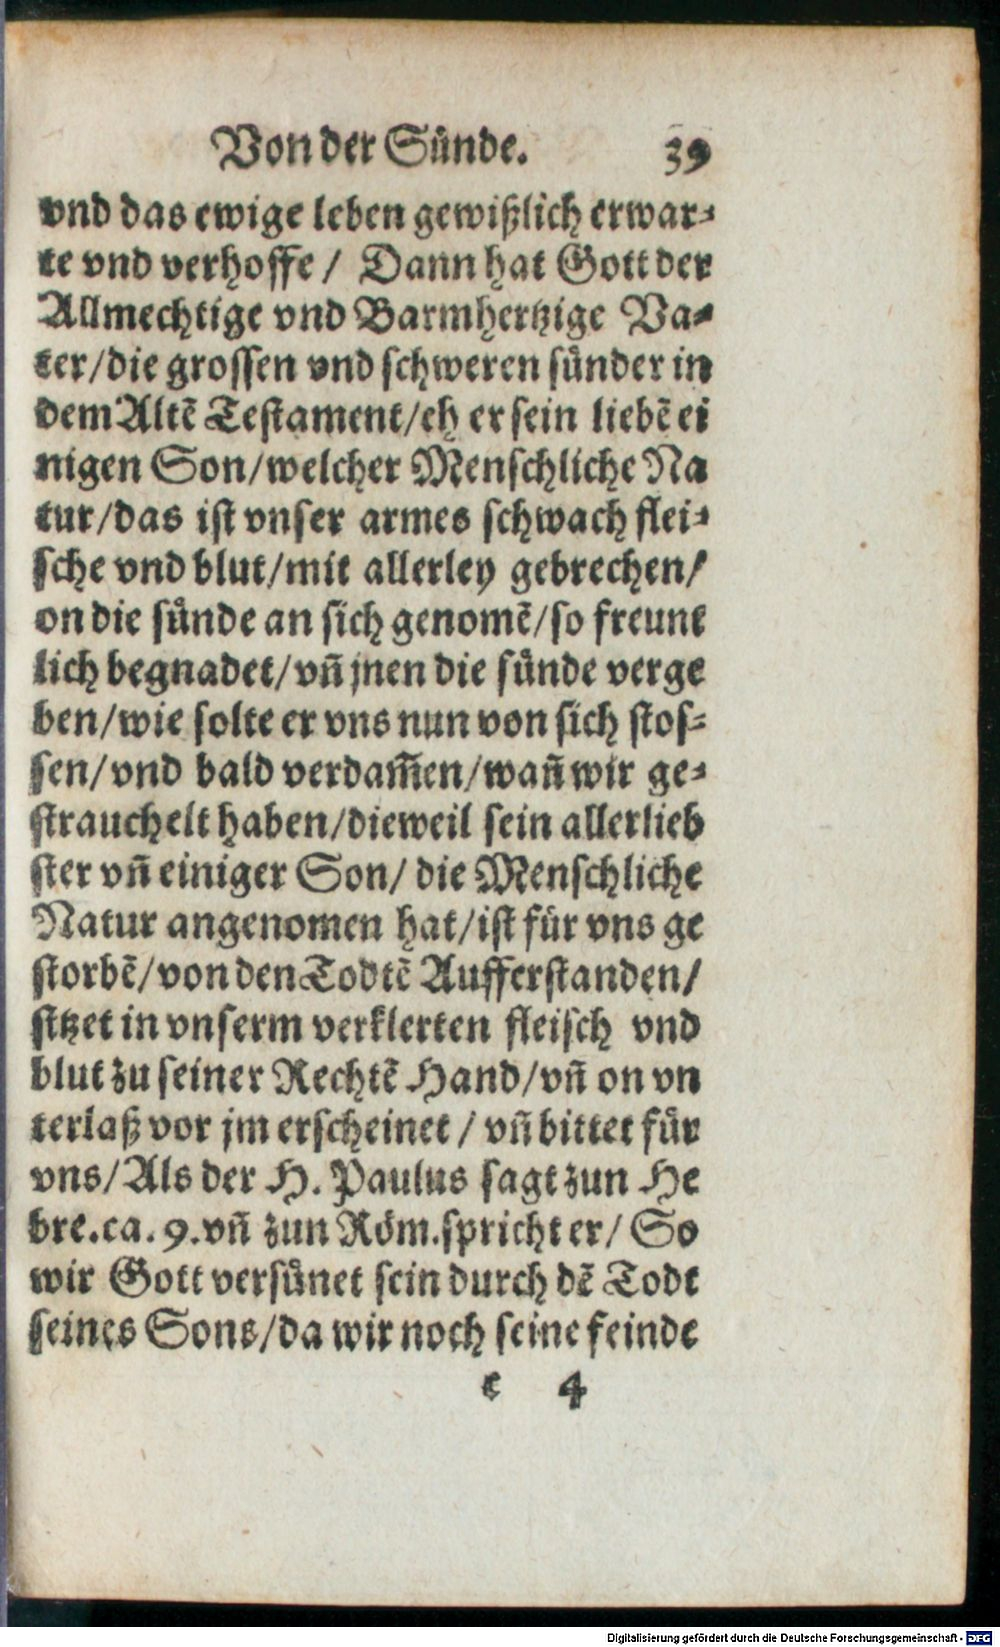 Von der Sünde. 39
vnd das ewige leben gewißlich erwar-
te vnd verhoffe / Dann hat Gott der
Allmechtige vnd Barmhertzige Va-
ter/die grossen vnd schweren sünder in
dem Altē Testament/eh er sein liebē ei
nigen Son/welcher Menschliche Na
tur/das ist vnser armes schwach flei-
sche vnd blut/mit allerley gebrechen/
on die sünde an sich genomē/so freunt
lich begnadet/vn̄ jnen die sünde verge
ben/wie solte er vns nun von sich stos-
sen/vnd bald verdam̄en/wan̄ wir ge-
strauchelt haben/dieweil sein allerlieb
ster vn̄ einiger Son/ die Menschliche
Natur angenomen hat/ist für vns ge
storbē/von den Todtē Aufferstanden/
sitzet in vnserm verklerten fleisch vnd
blut zu seiner Rechtē Hand/vn̄ on vn
terlaß vor jm erscheinet / vn̄ bittet für
vns/Als der H. Paulus sagt zun He
bre.ca. 9.vn̄ zun Röm.spricht er/ So
wir Gott versünet sein durch dē Todt
seines Sons/da wir noch seine feinde
e 4
Digitalisierung gefördert durch die Deutsche Forschungsgemeinschaft - DFG